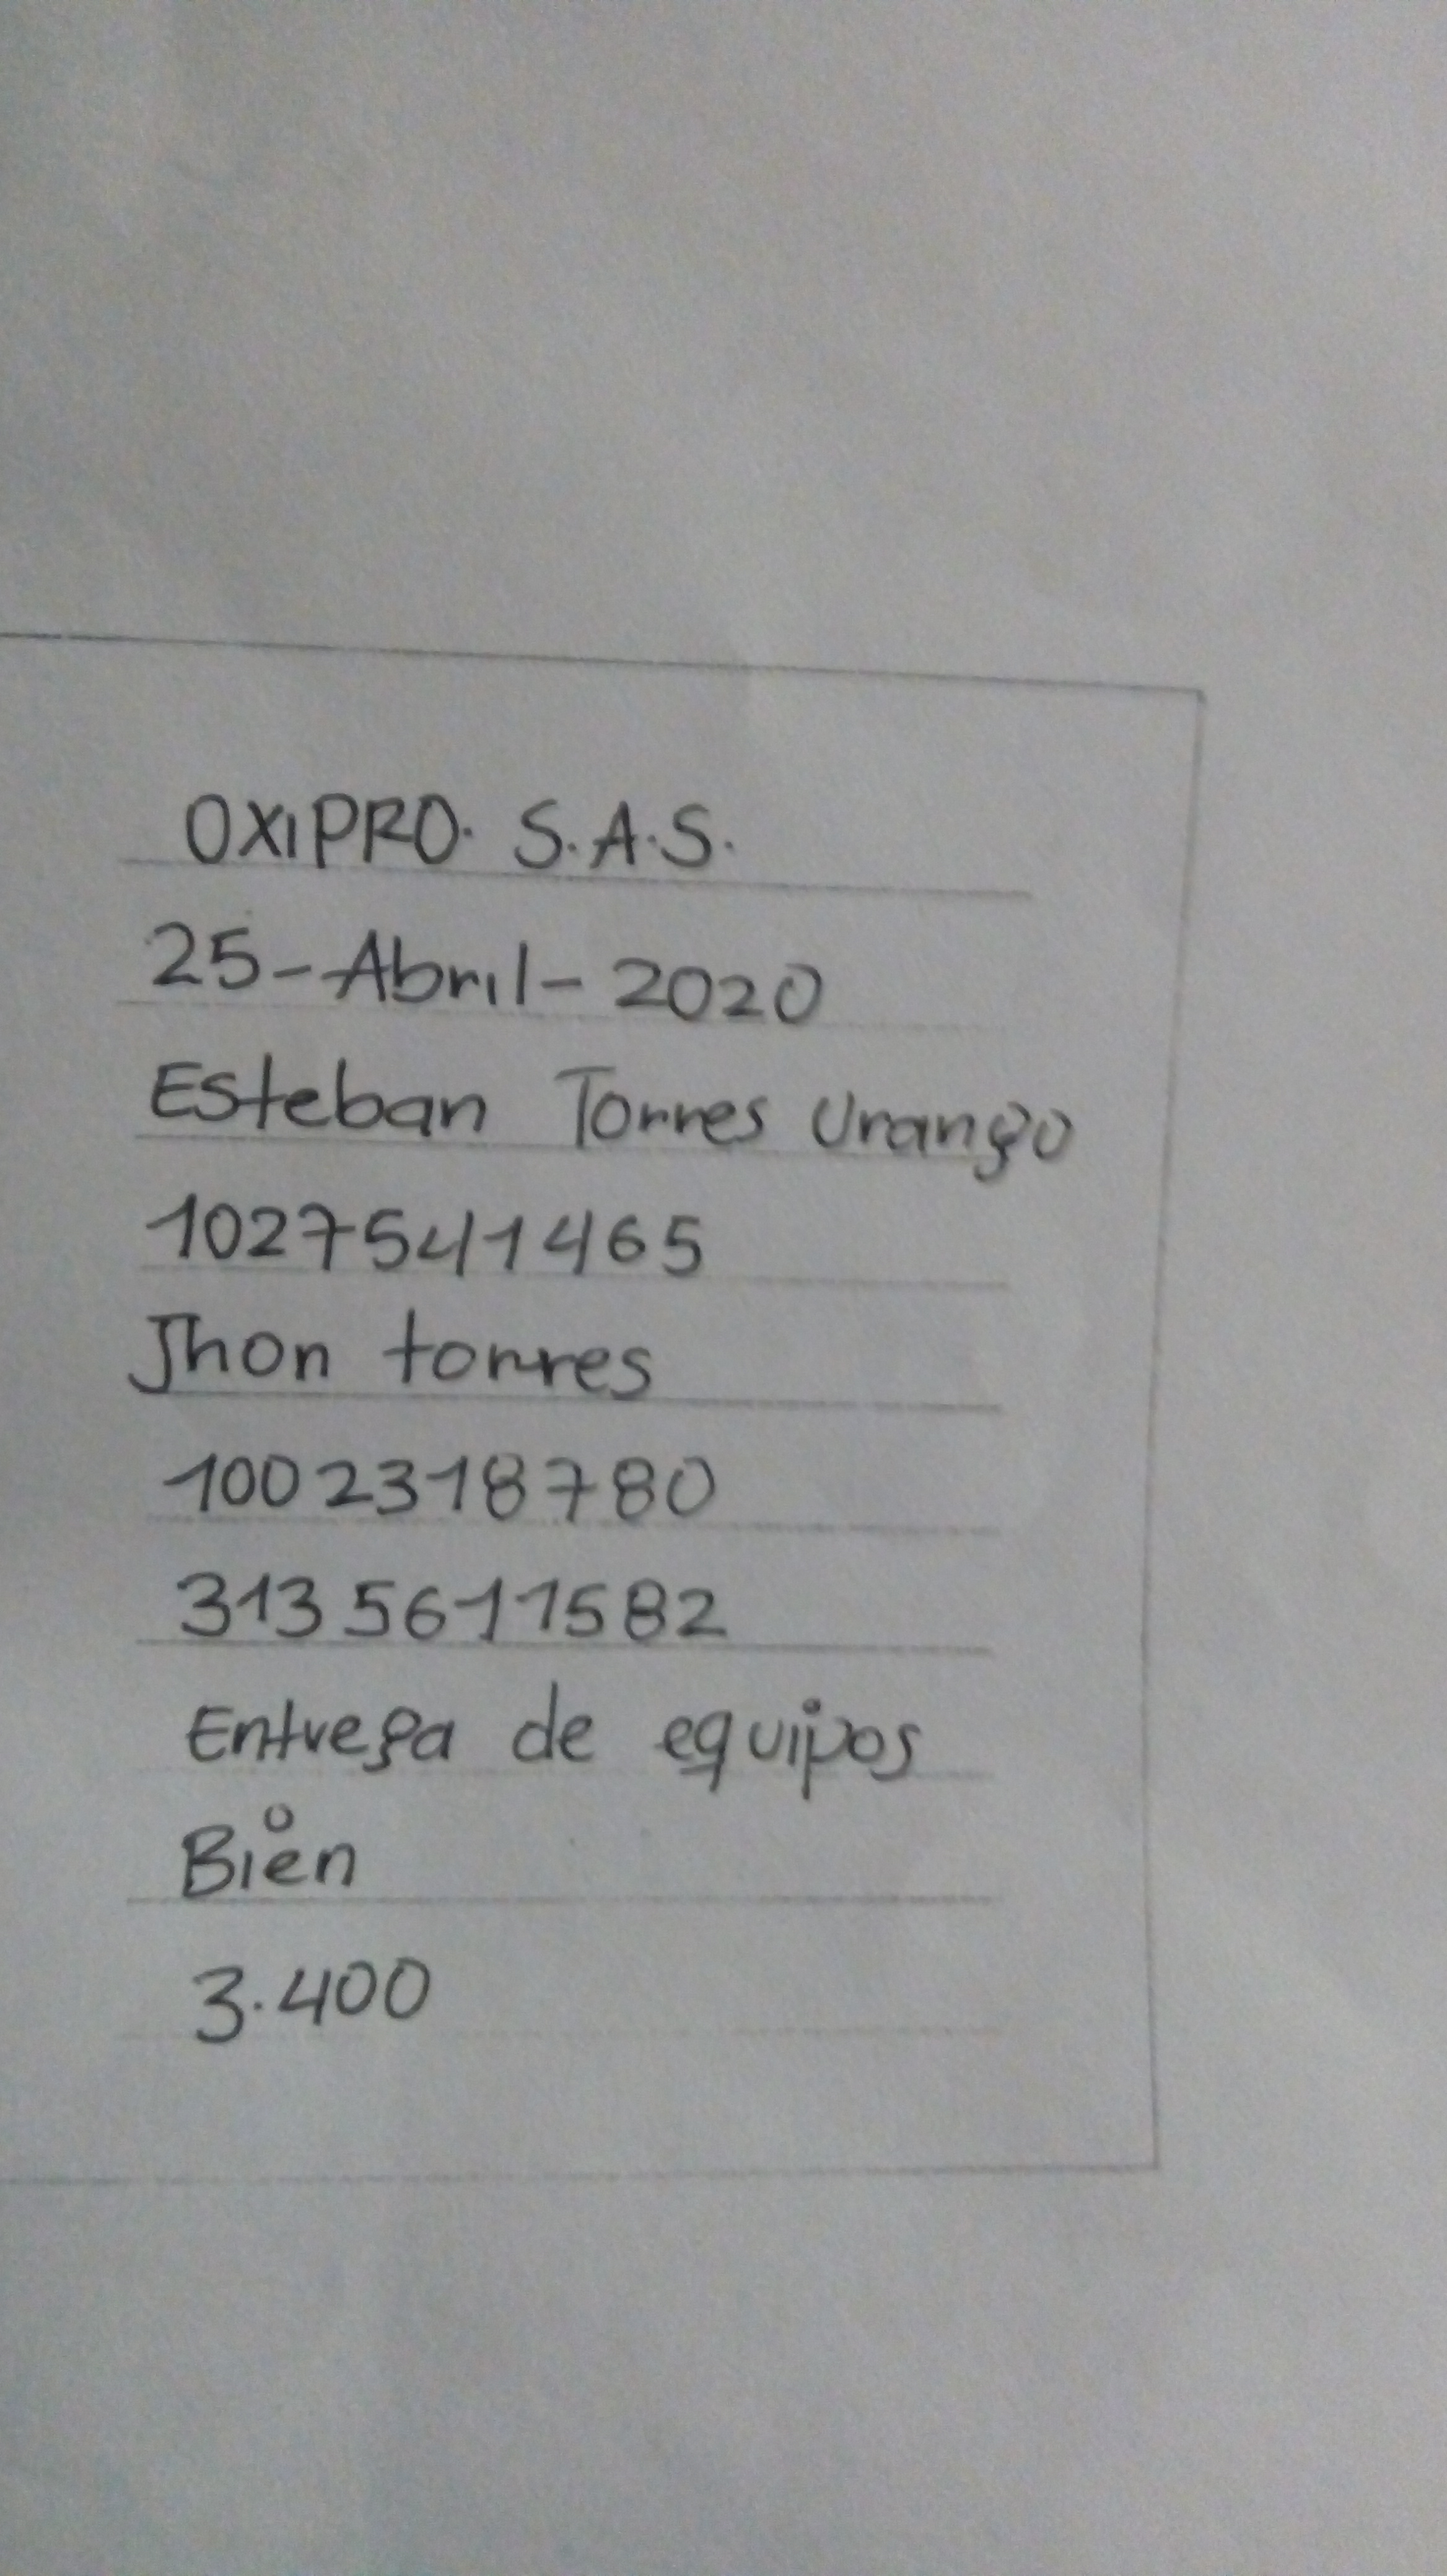 OXIPRO. S.A.S.
25-Abril-2020
Esteban Torres Urango
1027541465
Jhon torres
1002318780
3135611582
Entrega de equipos
Bien
3.400